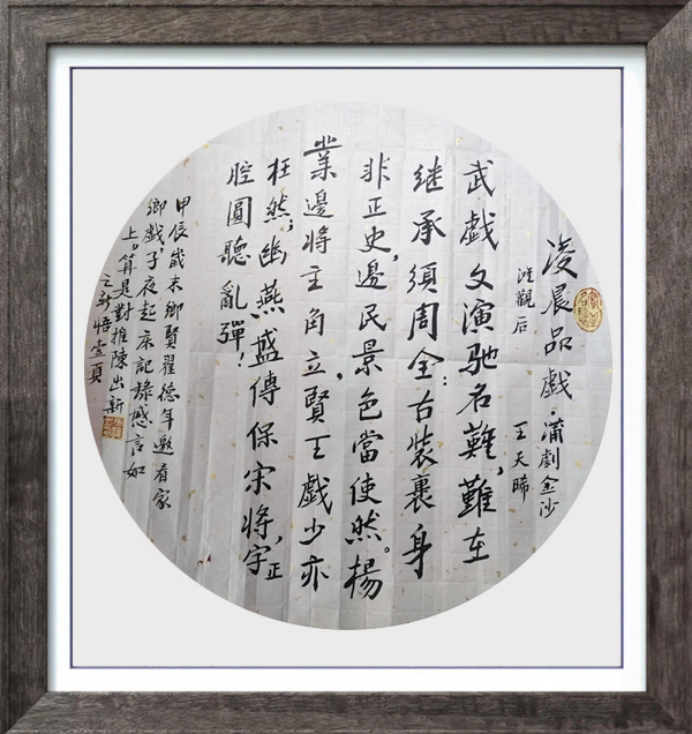 凌晨品戲·蒲劇金沙
灘觀后 王天晞
武戲文演馳名難,難在
继承須周全:古裝裹身
非正史,邊民景色當使然。楊
業邊將主角立,賢王戲少亦
枉然;幽燕盛傳保宋將,字正
腔圓聽亂彈!
甲辰歲末鄉賢翟德年邀看家
鄉戲,子夜起床記錄感言如
上,算是對推陳出新
之新悟壹頁